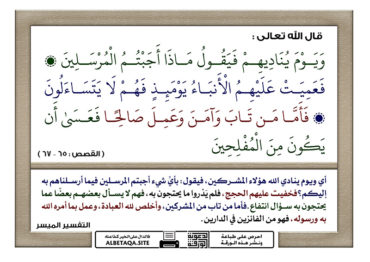 قال الله تعالى :
وَيَوْمَ يُنَادِيهِمْ فَيَقُولُ مَاذَا أَجَبْتُمُ الْمُرْسَلِينَ ۝
فَعَمِيَتْ عَلَيْهِمُ الْأَنبَاءُ يَوْمَئِذٍ فَهُمْ لَا يَتَسَاءَلُونَ
۝ فَأَمَّا مَن تَابَ وَآمَنَ وَعَمِلَ صَالِحًا فَعَسَىٰ أَن
يَكُونَ مِنَ الْمُفْلِحِينَ
( القصص : ٦٥ - ٦٧ )
أي ويوم ينادي الله هؤلاء المشركين، فيقول: بأيِّ شيء أجبتم المرسلين فيما أرسلناهم به
إليكم؟ فخفيت عليهم الحجج، فلم يَدْروا ما يحتجون به، فهم لا يسأل بعضهم بعضًا عما
يحتجون به سؤال انتفاع. فأما من تاب من المشركين، وأخلص لله العبادة، وعمل بما أمره الله
به ورسوله، فهو من الفائزين في الدارين.
التفسير الميسر
احرص على طباعة
ونشر هذه الورقة
ALBETAQA.SITE